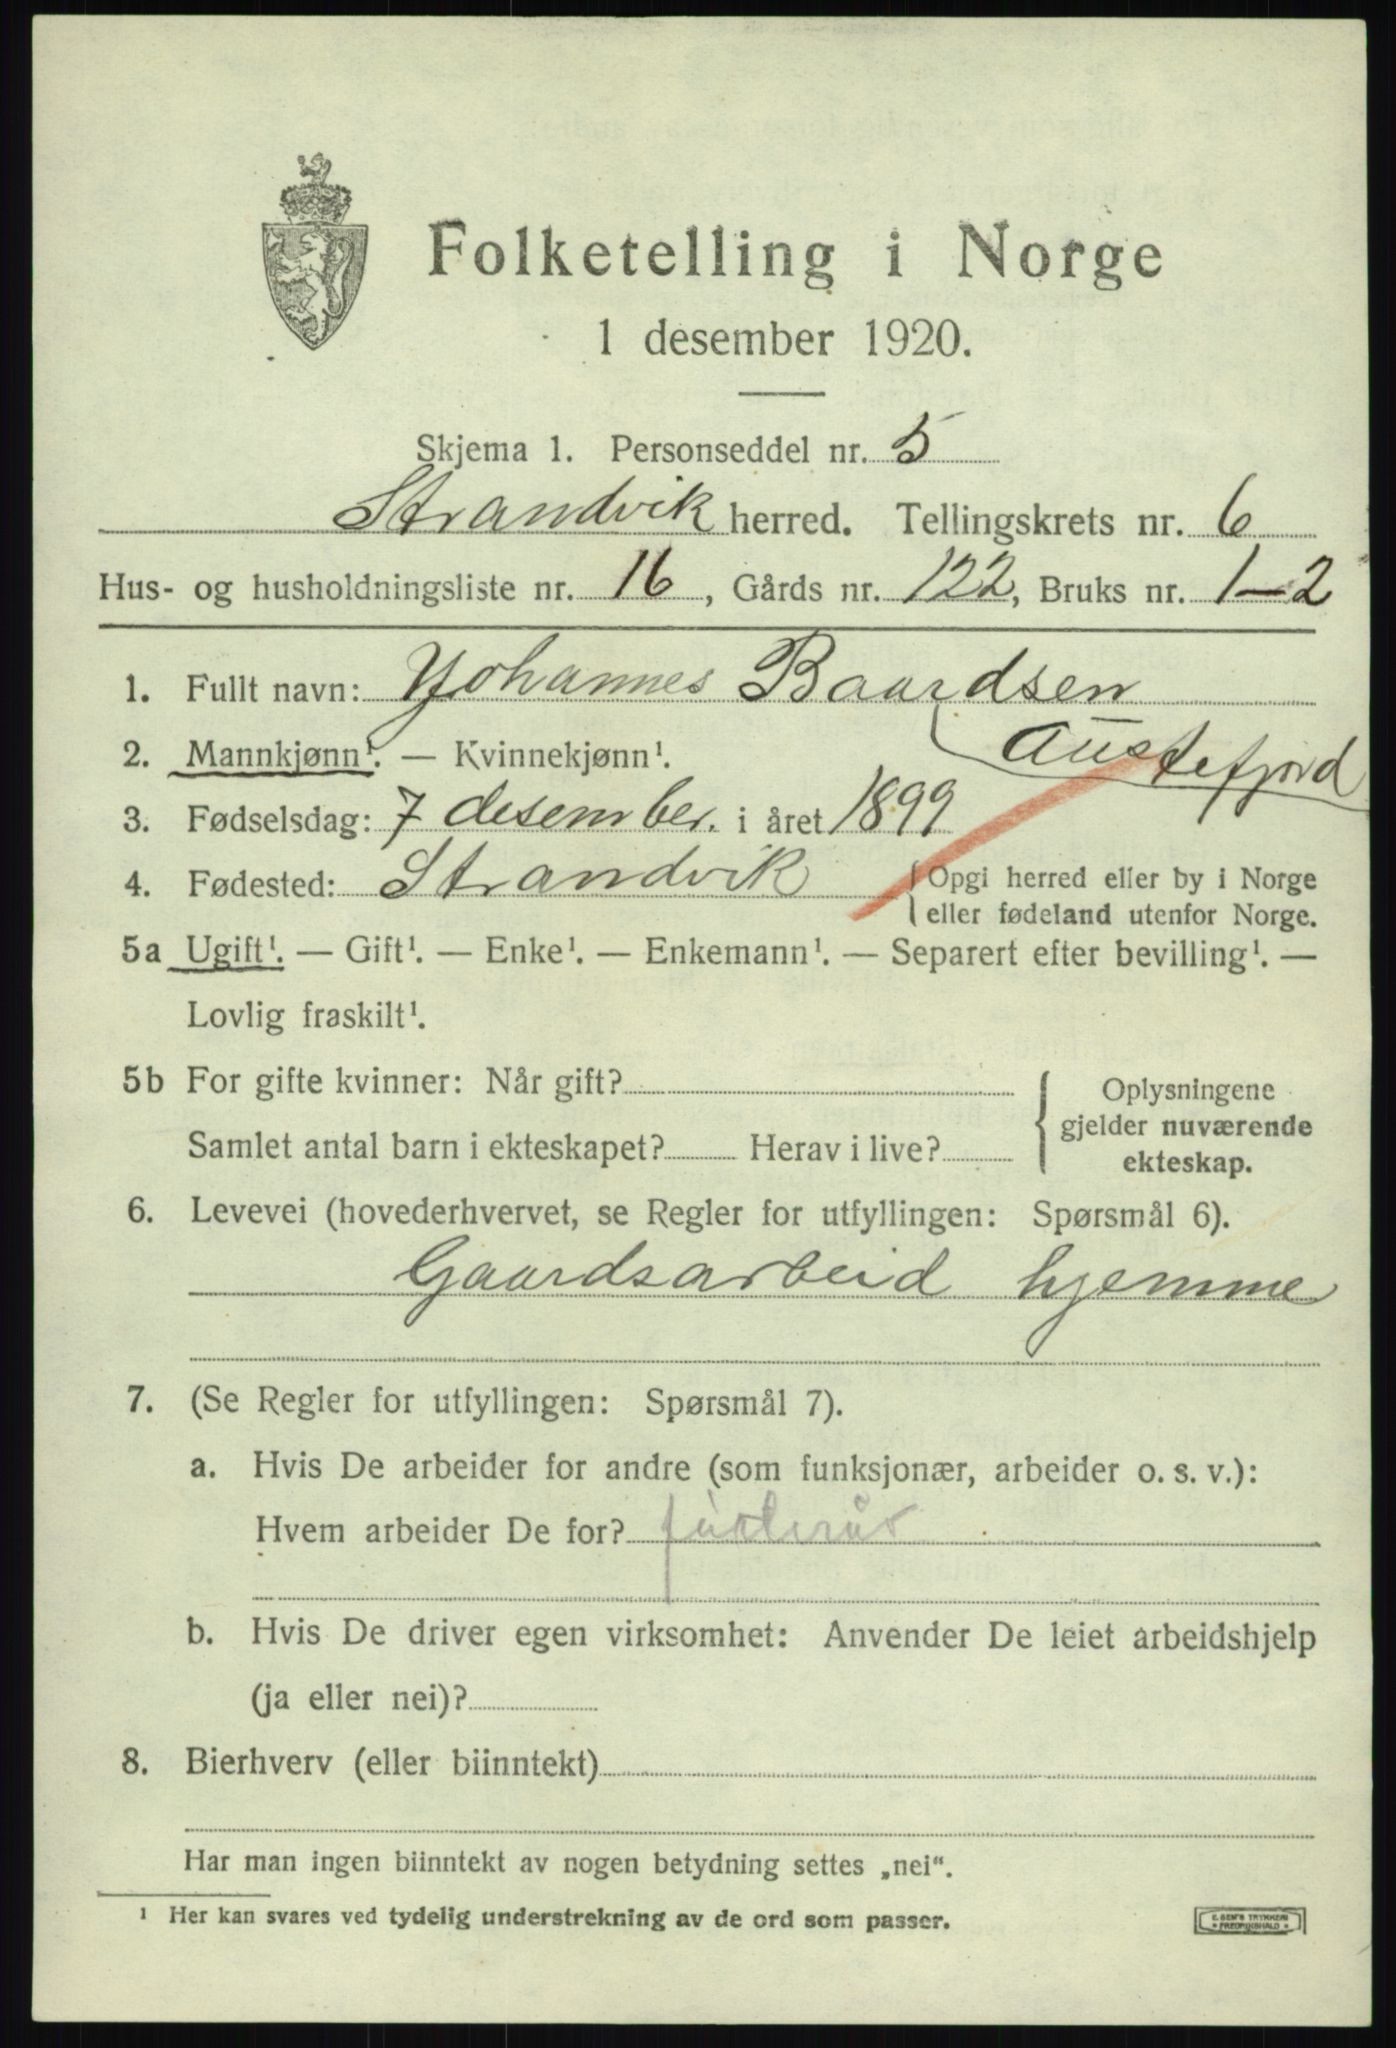 Folketelling i Norge
1 desember 1920.
Skjema 1. Personseddel nr. 5
Strandvik herred. Tellingskrets nr. 6
Hus- og husholdningsliste nr. 16, Gårds nr. 122, Bruks nr. 1-2
1. Fullt navn: Johannes Baardsen
Austefjord
2. Mannkjønn¹. — Kvinnekjønn¹.
3. Fødselsdag: 7 desember. i året 1899
4. Fødested: Strandvik { Opgi herred eller by i Norge
eller fødeland utenfor Norge.
5a Ugift¹. — Gift¹. — Enke¹. — Enkemann¹. — Separert efter bevilling¹. —
Lovlig fraskilt¹.
5b For gifte kvinner: Når gift?
Samlet antal barn i ekteskapet? Herav i live?
{ Oplysningene
gjelder nuværende
ekteskap.
6. Levevei (hovederhvervet, se Regler for utfyllingen: Spørsmål 6).
Gaardsarbeid hjemme
7. (Se Regler for utfyllingen: Spørsmål 7).
a. Hvis De arbeider for andre (som funksjonær, arbeider o. s. v.):
Hvem arbeider De for?
b. Hvis De driver egen virksomhet: Anvender De leiet arbeidshjelp
(ja eller nei)?
8. Bierhverv (eller biinntekt)
Har man ingen biinntekt av nogen betydning settes „nei“.
¹ Her kan svares ved tydelig understrekning av de ord som passer.
E. SEM'S TRYKKERI
* FREDRIKSHALD *